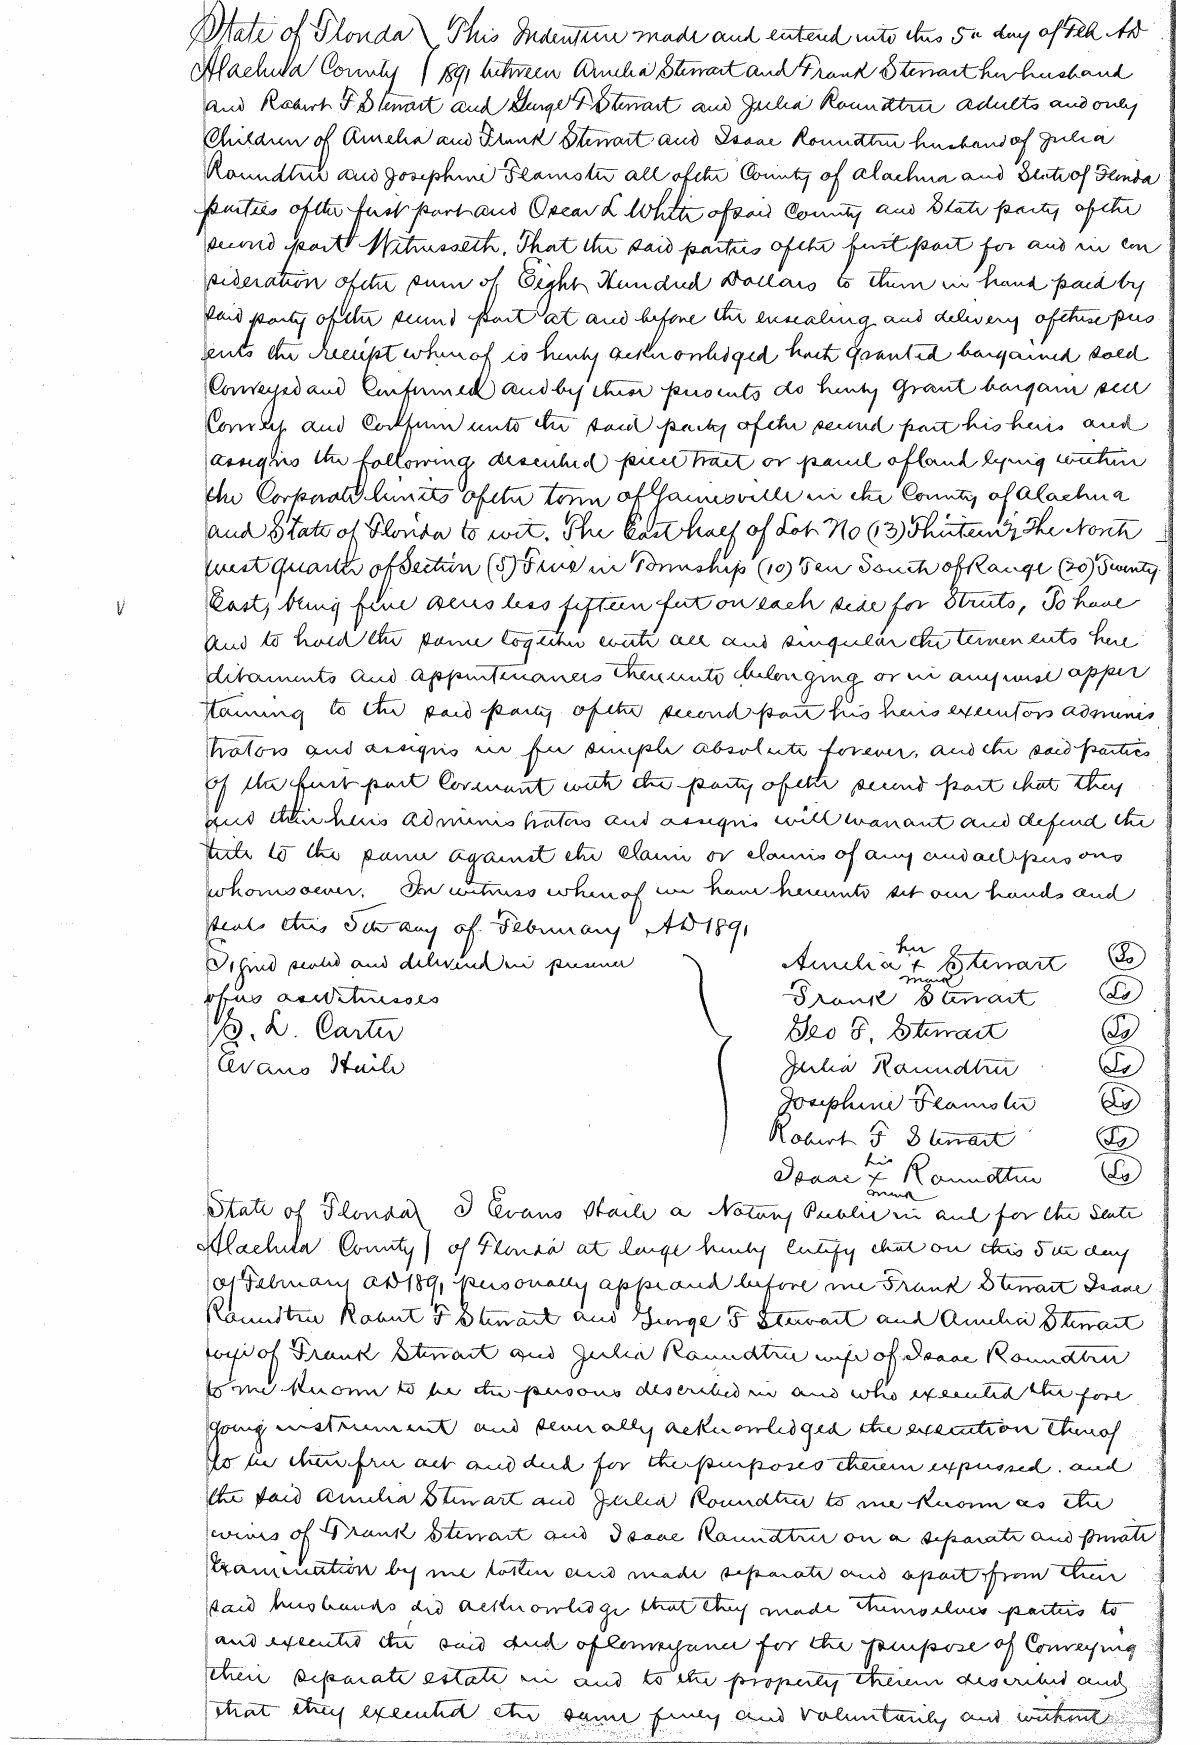 State of Florida ) This Indenture made and entered into this 5th day of Feb AD
Alachua County ) 1891 between Amelia Stewart and Frank Stewart her husband
and Robert F Stewart and George F Stewart and Julia Roundtree adults and only
Children of Amelia and Frank Stewart and Isaac Roundtree husband of Julia
Roundtree and Josephine Feamster all of the County of Alachua and State of Florida
parties of the first part and Oscar L White of said County and State party of the
second part Witnesseth, That the said parties of the first part for and in con
sideration of the sum of Eight Hundred Dollars to them in hand paid by
said party of the second part at and before the ensealing and delivery of these pres
ents the receipt whereof is hereby acknowledged hath granted bargained sold
Conveyed and Confirmed and by these presents do hereby grant bargain sell
Convey and Confirm unto the said party of the second part his heirs and
assigns the following described piece tract or parcel of land lying within
the Corporate limits of the town of Gainesville in the County of Alachua
and State of Florida to wit. The East half of Lot No (13) Thirteen of The North
west quarter of Section (5) Five in Township (10) Ten South of Range (20) Twenty
East, being five acres less fifteen feet on each side for Streets, To have
and to hold the same together with all and singular the tenements here
ditaments and appurtenances thereunto belonging or in anywise apper
taining to the said party of the second part his heirs executors adminis
trators and assigns in fee simple absolute forever, and the said parties
of the first part Covenant with the party of the second part that they
and their heirs administrators and assigns will warrant and defend the
title to the same against the claim or claims of any and all persons
whomsoever. In witness whereof we have hereunto set our hands and
seals this 5th day of February AD 1891
Signed sealed and delivered in presence
of us as Witnesses
B. L. Carter
Evans Haile
Amelia her x mark Stewart Ls
Frank Stewart Ls
Geo F. Stewart Ls
Julia Roundtree Ls
Josephine Feamster Ls
Robert F Stewart Ls
Isaac his x mark Roundtree Ls
State of Florida ) I Evans Haile a Notary Public in and for the State
Alachua County ) of Florida at large hereby Certify that on this 5th day
of February AD 1891 personally appeared before me Frank Stewart Isaac
Roundtree Robert F Stewart and George F Stewart and Amelia Stewart
wife of Frank Stewart and Julia Roundtree wife of Isaac Roundtree
to me known to be the persons described in and who executed the fore
going instrument and severally acknowledged the execution thereof
to be their free act and deed for the purposes therein expressed. and
the said Amelia Stewart and Julia Roundtree to me known as the
wives of Frank Stewart and Isaac Roundtree on a separate and private
Examination by me taken and made separate and apart from their
said husbands did acknowledge that they made themselves parties to
and executed the said deed of Conveyance for the purpose of Conveying
their separate estate in and to the property therein described and
that they executed the same freely and voluntarily and without